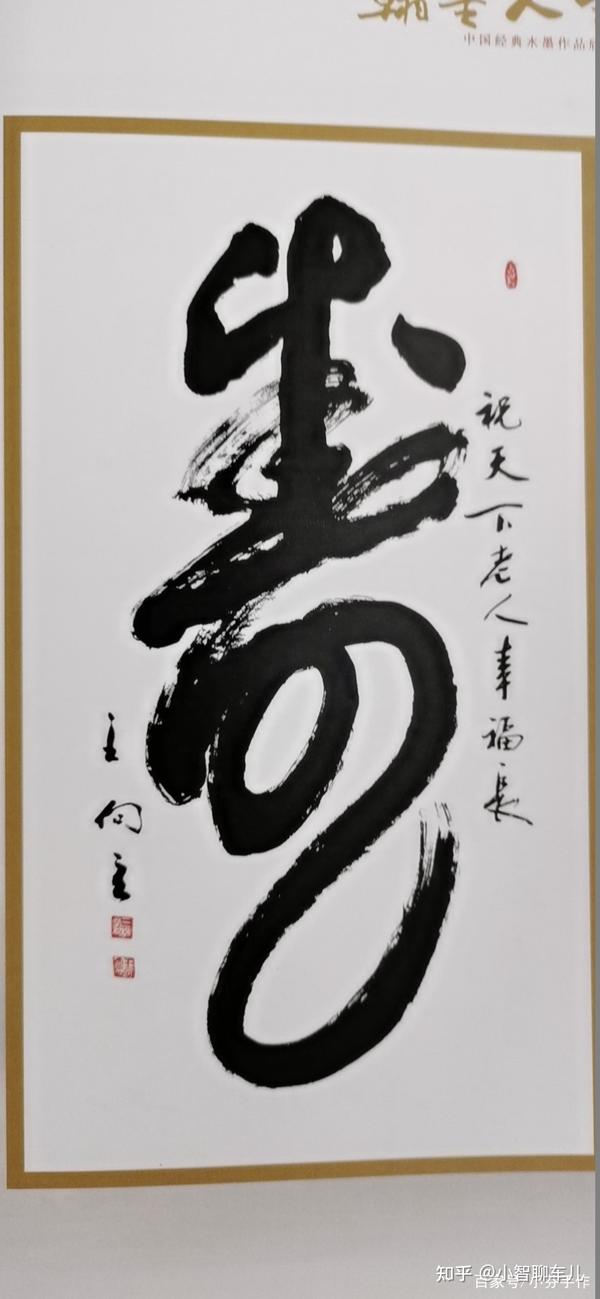 中国经典水墨作品
寿
祝天下老人幸福长
王向
知乎 @小智聊车儿
百家号/小芬手作